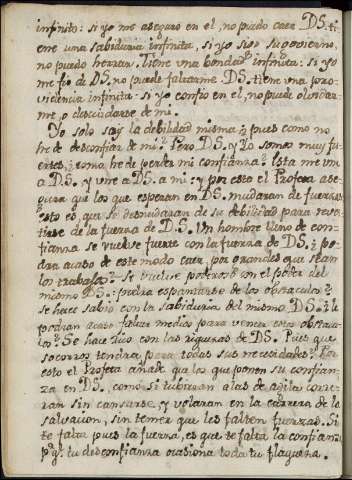 infinito: si yo me aseguro en el, no puedo caer. DS. ti
ene una sabiduria infinita, si yo sigo su govierno,
no puedo herrar. Tiene una bondad infinita: si yo
me fio de DS. no puede faltarme. DS. tiene una pro-
videncia infinita: si yo confio en el, no puede olvidar-
me, o descuidarse de mi.
Yo solo soy la debilidad misma; pues como no
he de desconfiar de mi? Pero DS. y Yo somos muy fu
ertes, como he de perder mi confianza? Esta me une
a DS. y une a DS. a mi: y por esto el Profeta ase
gura que los que esperan en DS. mudaran de fuerzas
esto es, que se desnudaran de su debilidad para reves
tirse de la fuerza de DS. Un hombre lleno de con-
fianza se vuelve fuerte con la fuerza de DS. ? po
dra acaso de este modo caer, por grandes que sean
los trabajos? Se vuelve poderoso con el poder del
mismo DS.: podra espantarse de los obstaculos?
se hace sabio con la sabiduria del mismo DS. ? le
podran acaso faltar medios para vencer estos obstacu
los? Se hace rico con las riquezas de DS. Pues que
socorros tendra para todas sus necesidades? Por
esto el Profeta añade que los que ponen su confian
za en DS., como si tubieran alas de aguila corre-
ran sin cansarse, y volaran en la carrera de la
salvacion, sin temer que les falten fuerzas. Si
te falta pues la fuerza, es que te falta la confianza
pq.e tu desconfianza ocasiona toda tu flaqueza.